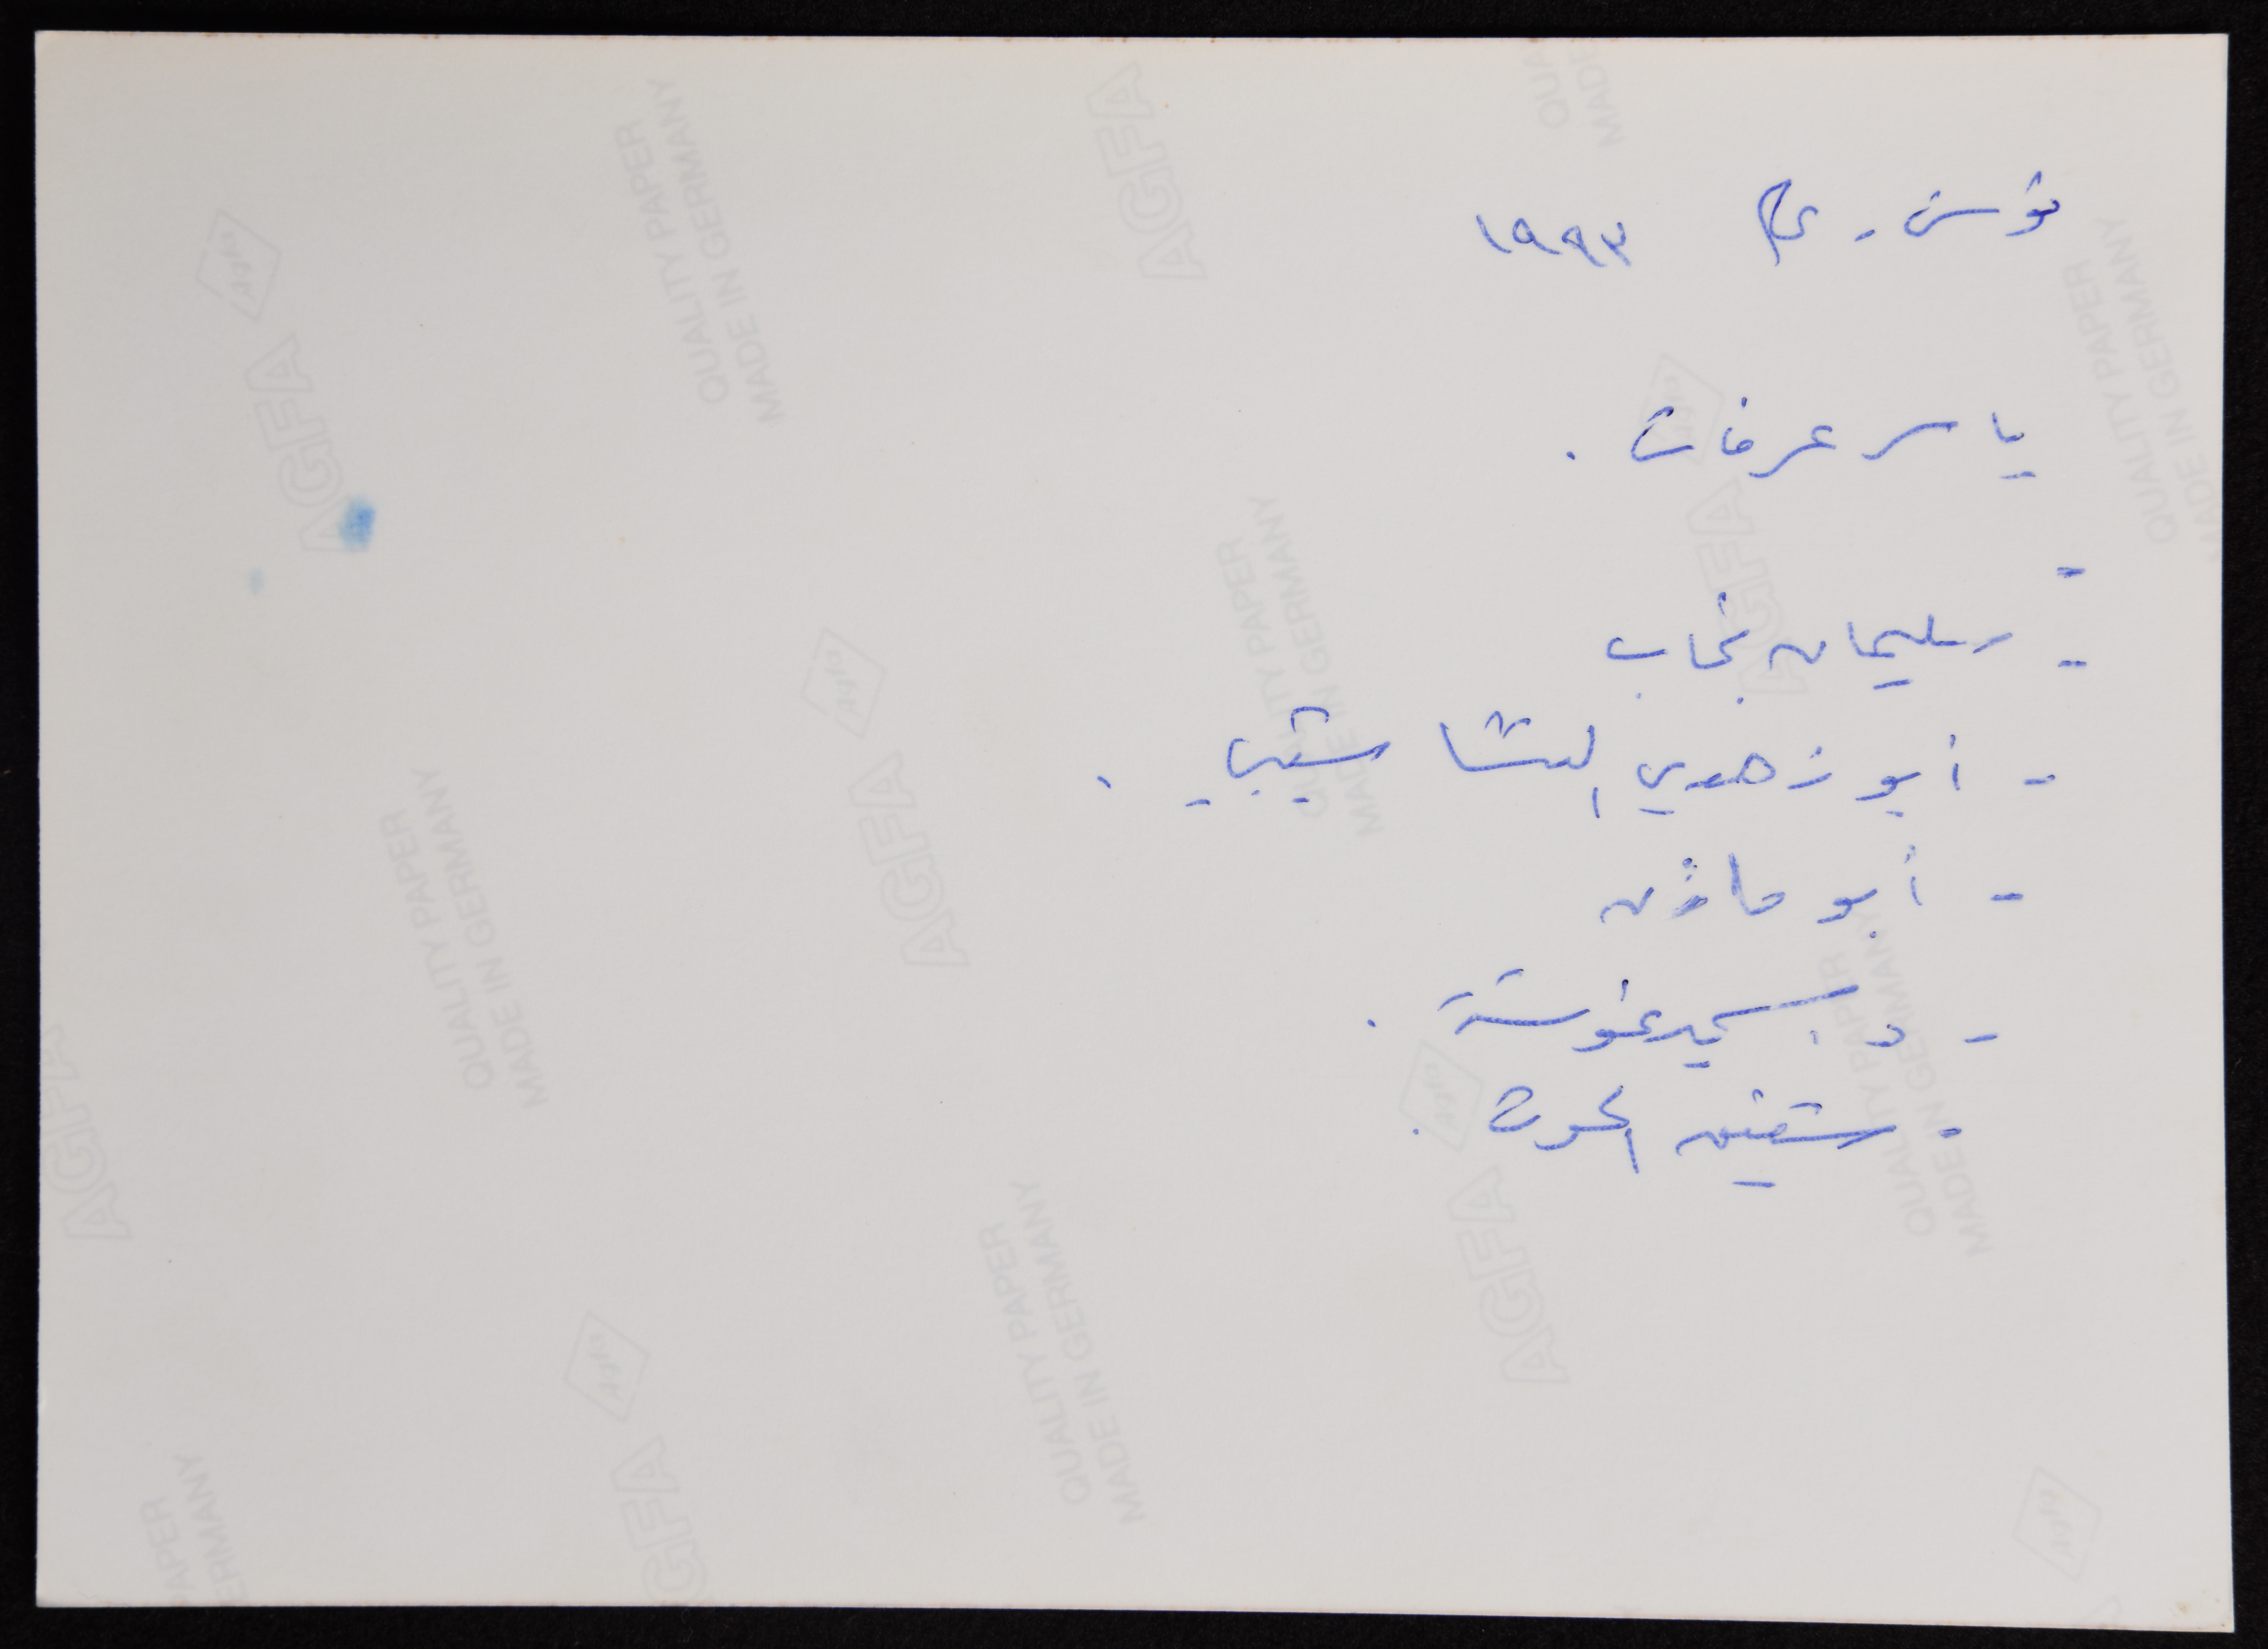 تونس - عام ١٩٩٣
ياسر عرفات .
-
- سليمان نجاب
- أبو زهدي النشاشيبي .
- أبو مازن
- د. سمير غوشة .
- شفيق الحوت .
AGFA
QUALITY PAPER
MADE IN GERMANY